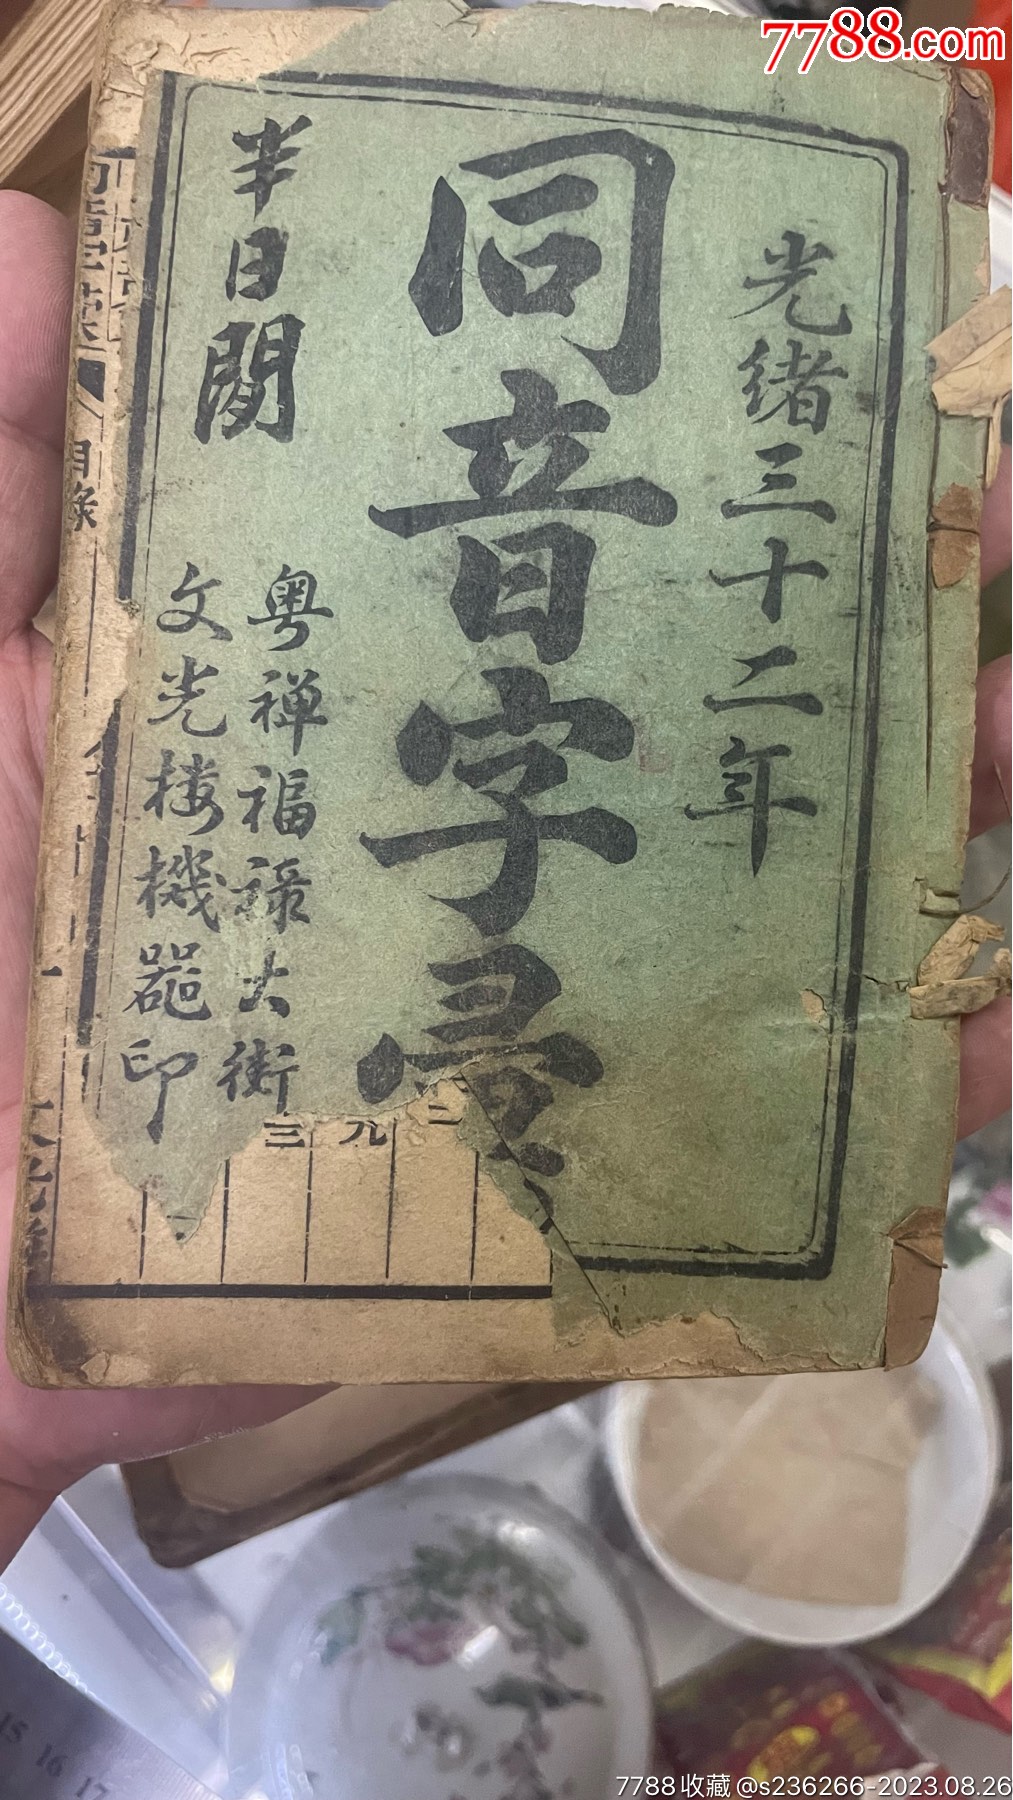 7788.com
光緒三十二年
同音字彙
半日閣
粵禅福祿大街
文光楼機器印
目錄
三九二
15 16 17
7788收藏@s236266-2023.08.26